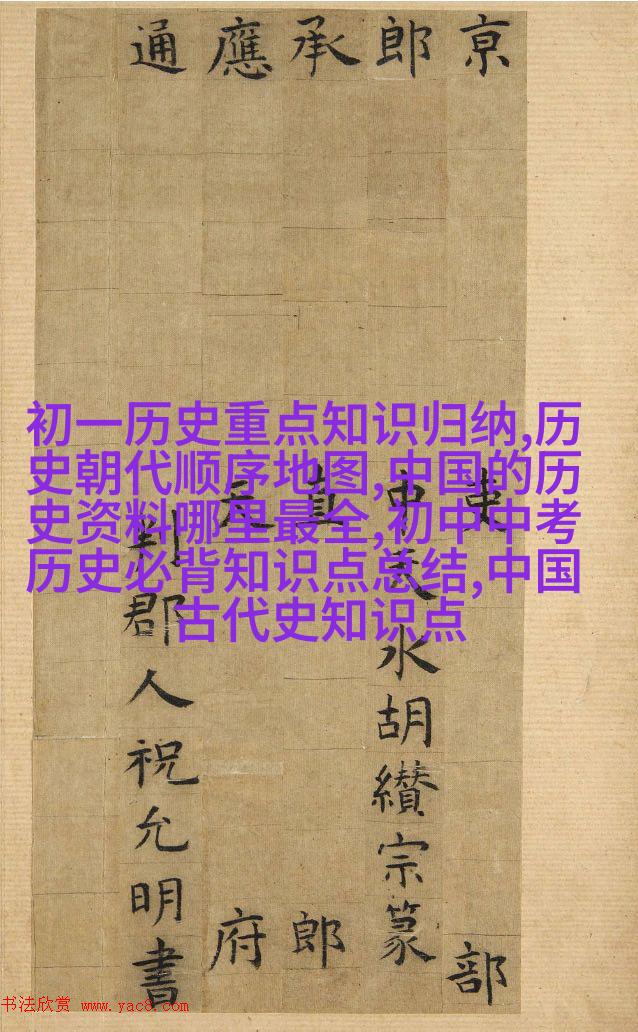 京吏部
郎中天水胡纘宗篆
承直郎
應天府
通判郡人祝允明書
初一历史重点知识归纳,历
史朝代顺序地图,中国的历
史资料哪里最全,初中中考
历史必背知识点总结,中国
古代史知识点
书法欣赏 www.yac8.com